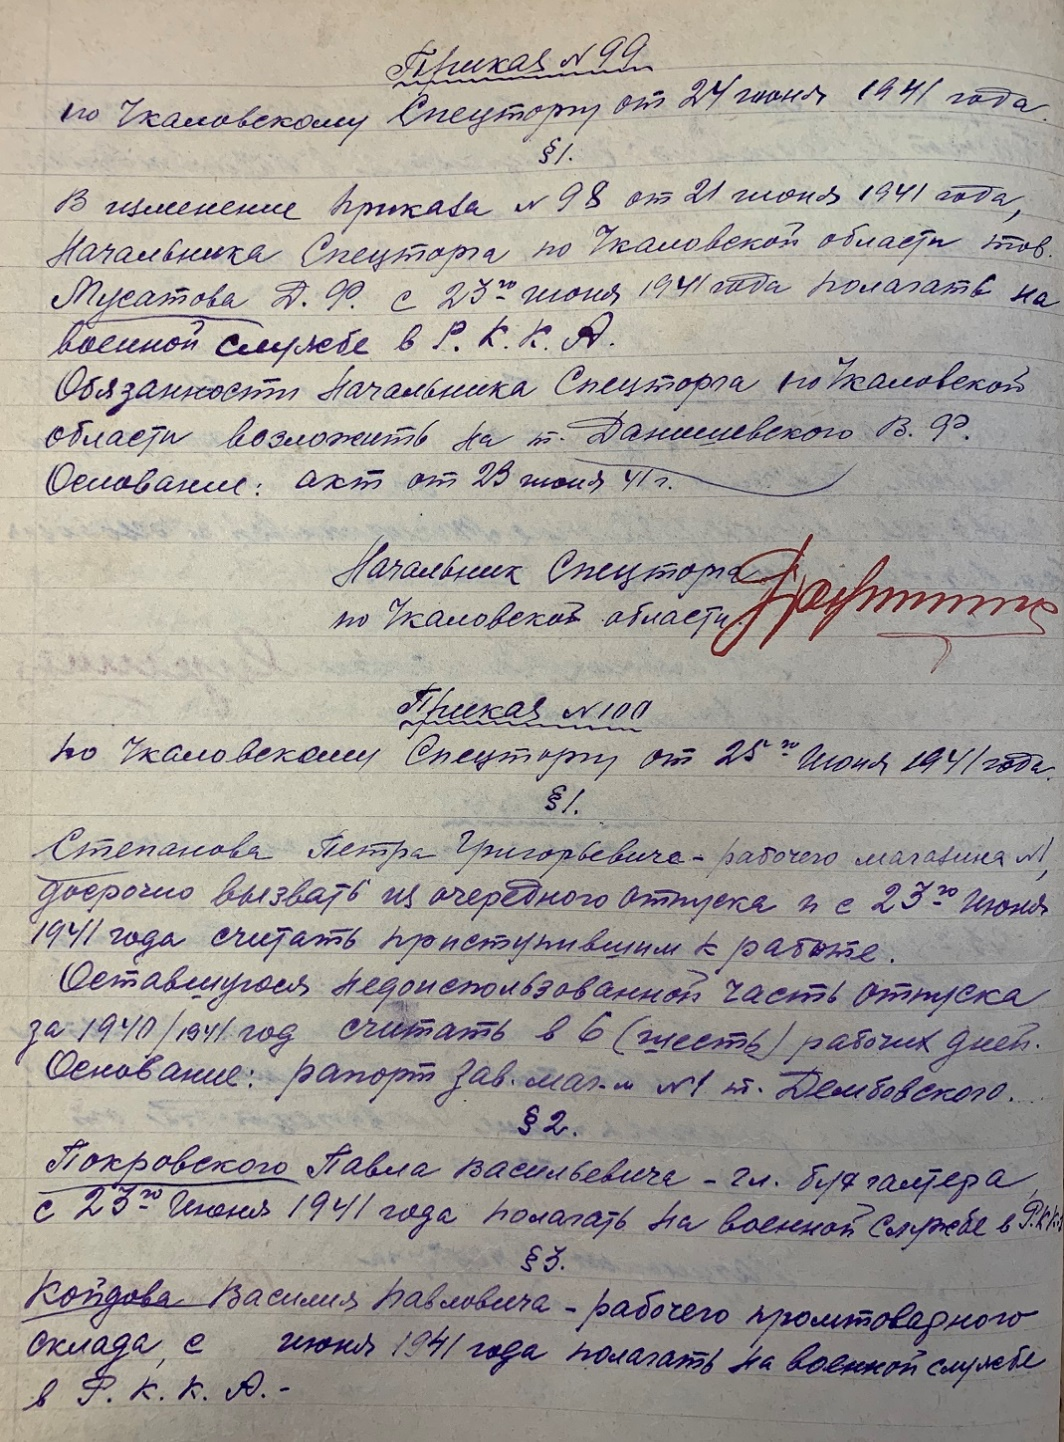 Приказ № 99
по Чкаловскому Спецторгу от 24 июня 1941 года.
§1.
В изменение приказа № 98 от 21 июня 1941 года,
Начальника Спецторга по Чкаловской области тов.
Мусатова Д. Ф. с 23го июня 1941 года полагать на
военной службе в Р. К. К. А.
Обязанности Начальника Спецторга по Чкаловской
области возложить на т. Данишевского В. Ф.
Основание: акт от 23 июня 41 г.
Начальник Спецторга
по Чкаловской области
Приказ № 100
по Чкаловскому Спецторгу от 25го июня 1941 года.
§1.
Степанова Петра Григорьевича - рабочего магазина №1,
досрочно вызвать из очередного отпуска и с 23го июня
1941 года считать приступившим к работе.
Оставшуюся недоиспользованной часть отпуска
за 1940/1941 год считать в 6 (шесть) рабочих дней.
Основание: рапорт зав. маг-м №1 т. Дембовского.
§2.
Покровского Павла Васильевича - гл. бухгалтера,
с 23го июня 1941 года полагать на военной службе в Р.К.К.А
§3.
Койдова Василия Павловича - рабочего промтоварного
склада, с июня 1941 года полагать на военной службе
в Р. К. К. А. -